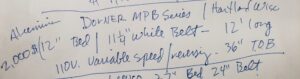 Aluminum DORNER MPB Series / Hartland Wisc
2.000$/12" Bed / 11¼" white Belt - 12' long
110V. Variable speed / reversing - 36" TOB
Bed 24" Belt